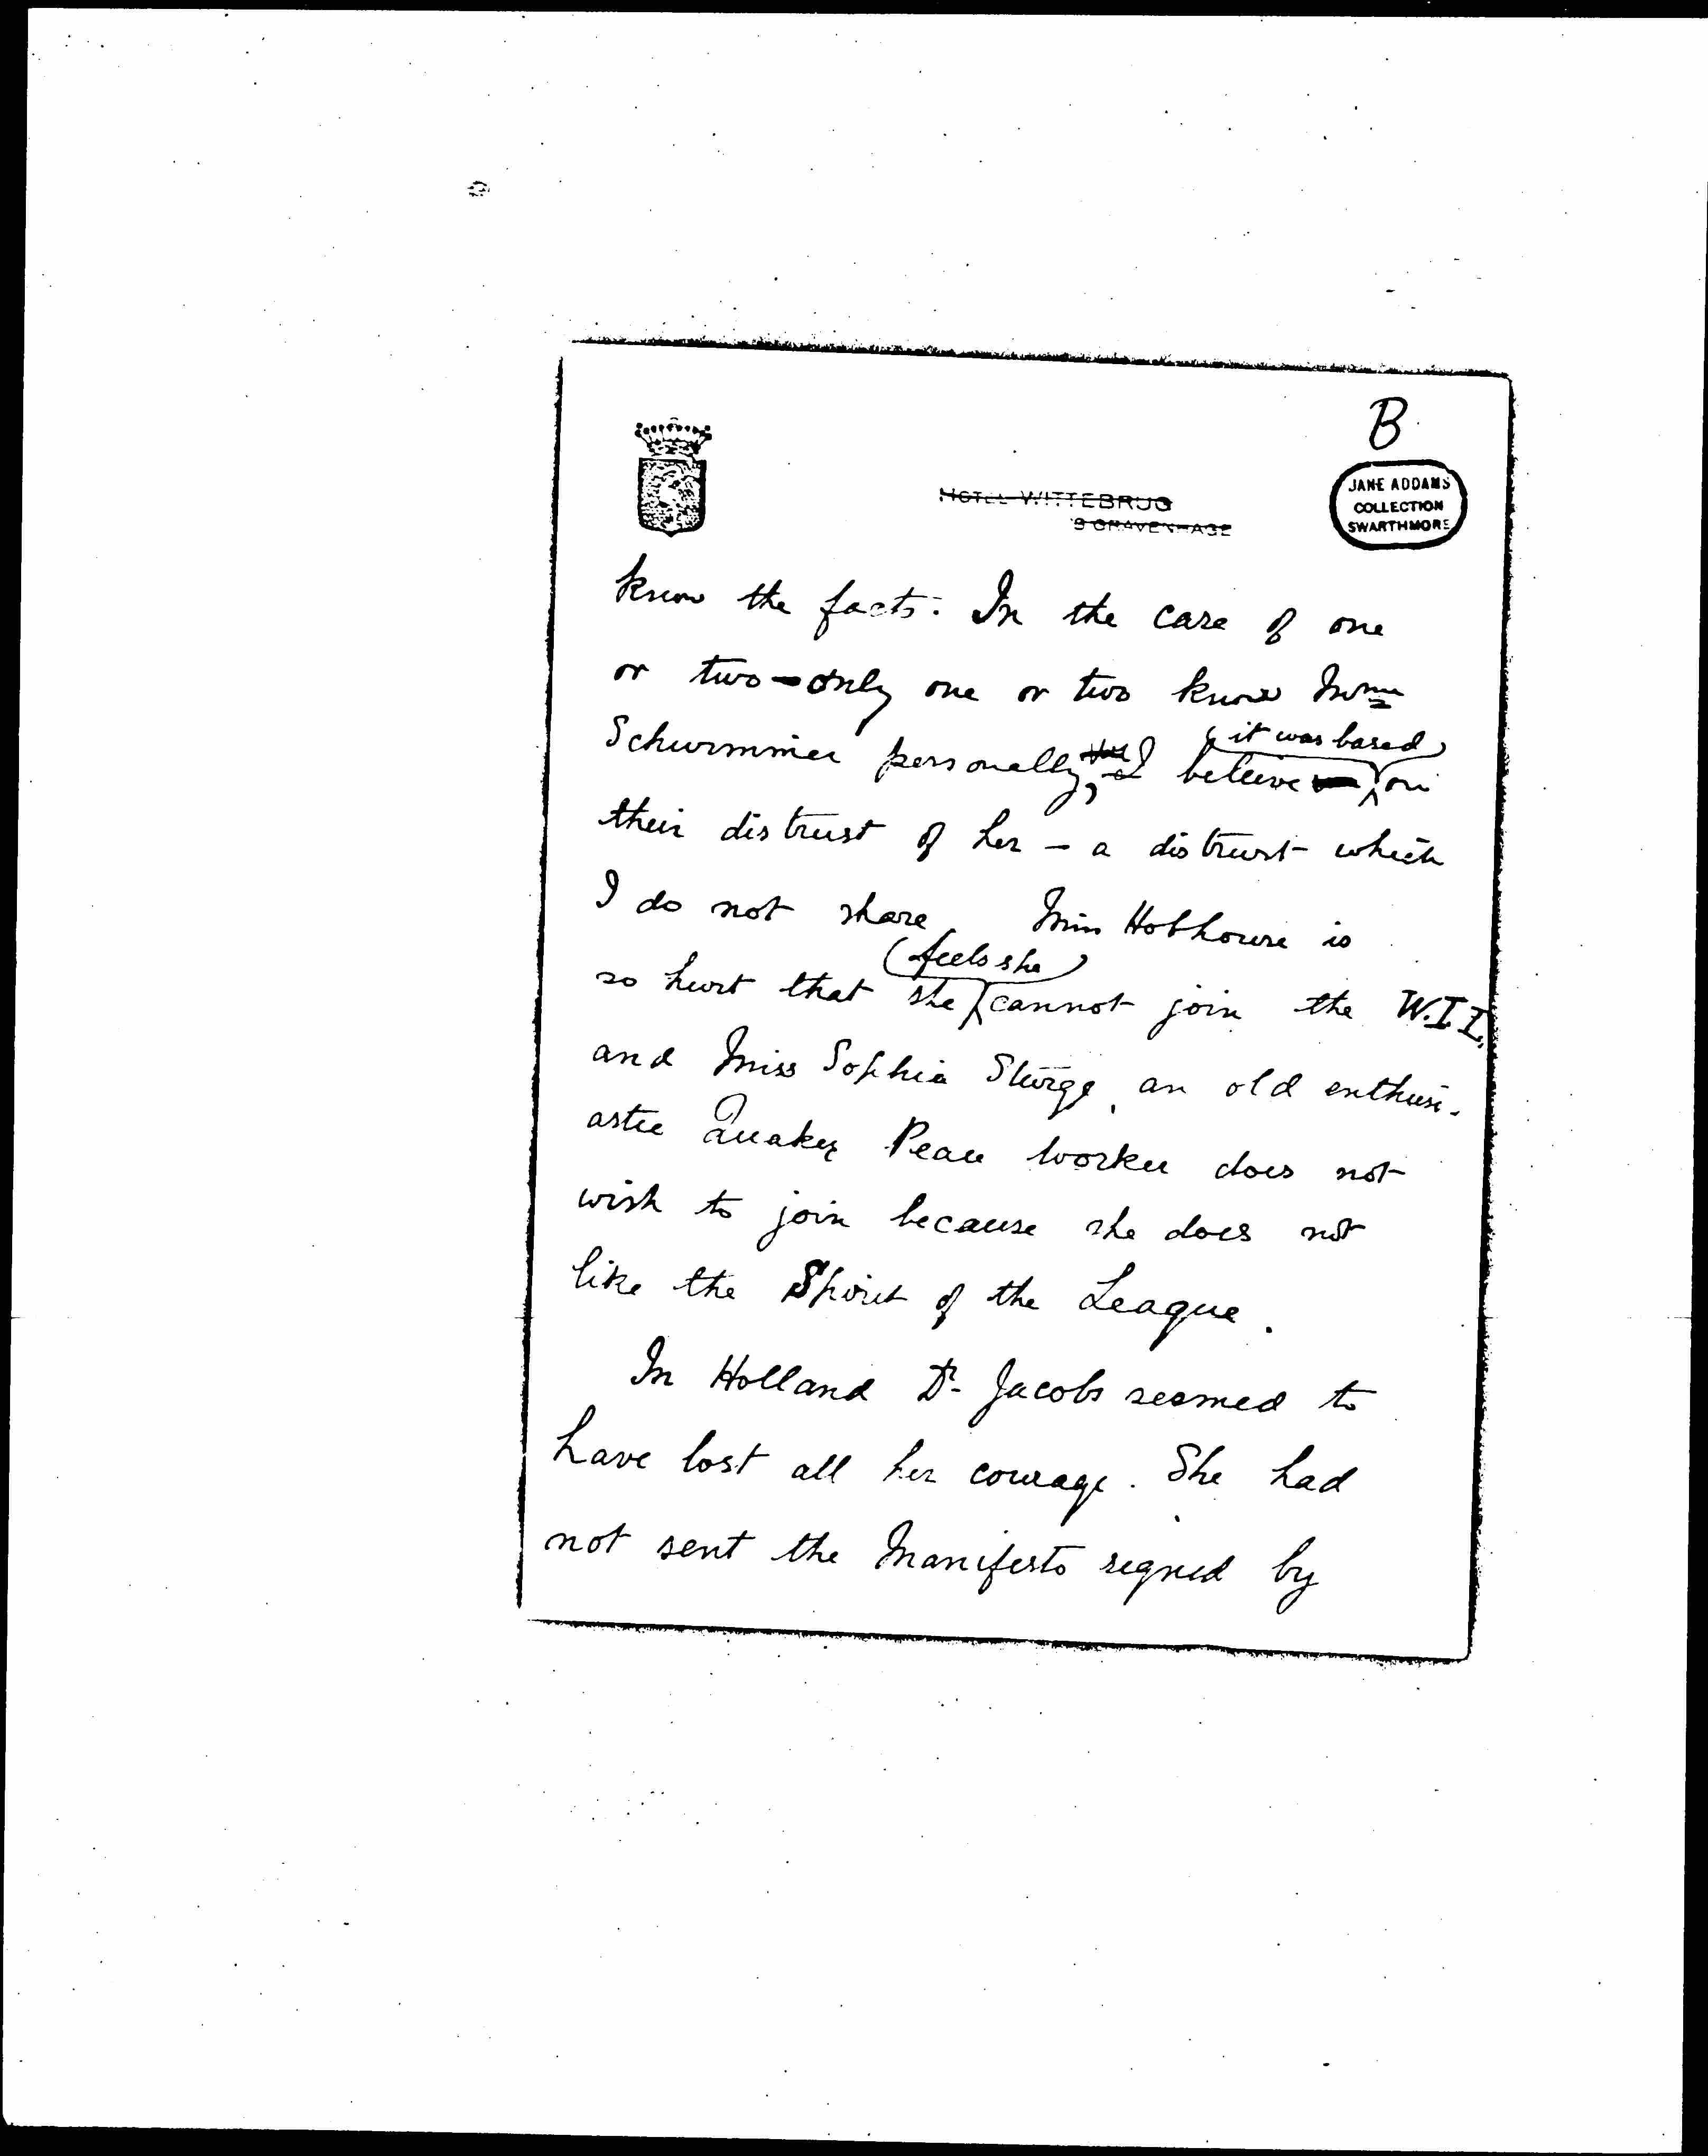 B
HOTEL WITTEBRUG
'S GRAVENHAGE
JANE ADDAMS
COLLECTION
SWARTHMORE
know the facts. In the case of one
or two - only one or two know Mme
Schwimmer personally, I believe it was based on
their distrust of her - a distrust which
I do not share. Miss Hobhouse is
so hurt that she feels she cannot join the W.I.L.
and Miss Sophia Sturge, an old enthusi-
astic Quaker Peace worker does not
wish to join because she does not
like the Spirit of the League.
In Holland Dr. Jacobs seemed to
have lost all her courage. She had
not sent the Manifesto signed by